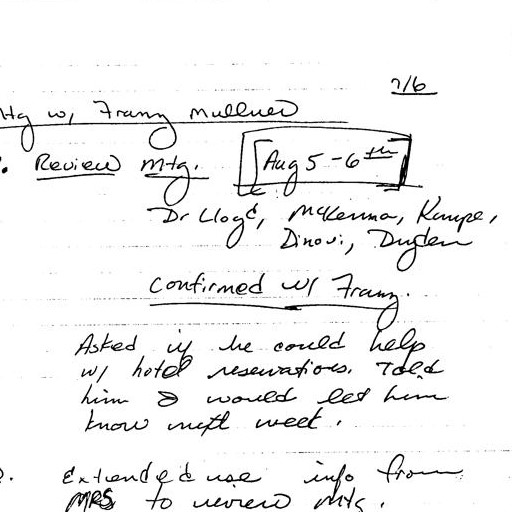 7/6
Mtg w/ Franz Mullner
Review Mtg. [Aug 5-6th]
Dr Lloyd, McKenna, Kampe,
Dinovi, Dryden
Confirmed w/ Franz.
Asked if he could help
w/ hotel reservations. Told
him I would let him
know next week.
Extended use info from
MRS to review mtg.